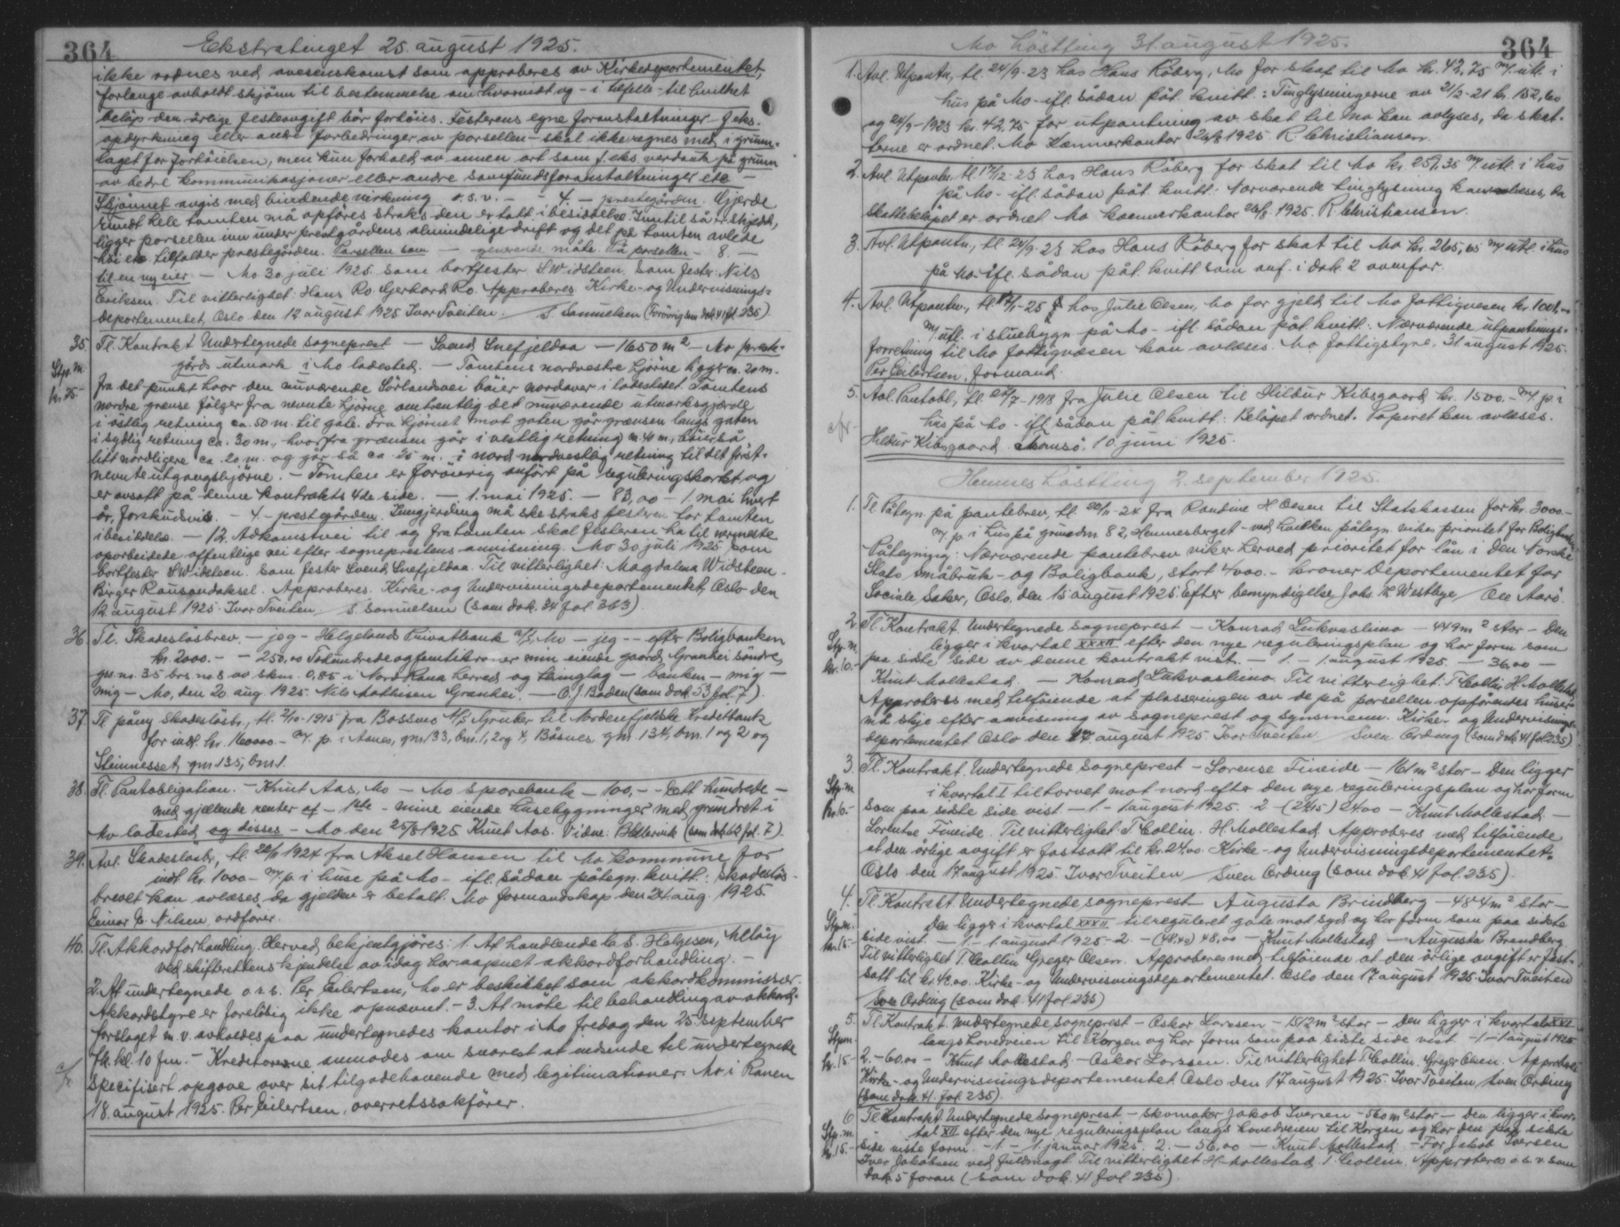 364
Ekstratinget 25 august 1925.
ikke ordnes ved overenskomst som approberes av Kirkedepartementet,
forlange avholdt skjönn til bestemmelse om hvorvidt og - i tilfelle til hvilket
belöp den årlige festeavgift bör forhöies. Festerens egne foranstaltninger f.eks.
opdyrkning eller andre forbedringer av parsellen skal ikke regnes med i grunn-
laget for forhöielsen, men kun forhold av annen art som f. eks. verdiök på grunn
av bedre kommunikasjoner eller andre samfundsforanstaltninger etc -
Skjönnet avgis med bindende virkning o.s.v. - - 4. - prestegården. Gjerde
rundt hele tomten må opföres straks den er tatt i besiddelse. Inntil så er skjedd,
ligger parsellen inn under prestgårdens almindelige drift og det på tomten avlede
höi etc tilfalder prestegården. Parsellen som - nærværende måte. På parsellen - 8. -
til en ny eier - Mo 30 juli 1925 som bortfester S Widsteen. Som fester Nils
Eriksen Til vitterlighet: Hans Ro Gerhard Ro Approberes Kirke- og Undervisnings-
departementet, Oslo den 12 august 1925 Ivar Tveiten. / S Samuelsen (forövrig som dok. 41 fol 235)
35. Tl. Kontrakt Undertegnede sogneprest - Svend Snefjeldaa - 1650 m² - Mo prest-
Stp.m. gårds utmark i Mo ladested. - Tomtens nordvestre hjörne ligger ca. 20 m.
kr. 25 fra det punkt hvor den nuværende Sörlandsvei böier nordover i ladestedet. Tomtens
nordre grense fölger fra nevnte hjörne omtrentlig det nuværende utmarksgjærde
i östlig retning ca. 50 m. til gate. Fra hjörnet mot gaten går grænsen langs gaten
i sydlig retning ca. 30 m., hvorfra grænsen går i vestlig retning ca. 40 m, böier så
litt nordligere ca. 20 m. og går så ca. 25 m. i nord nordvestlig retning til det först-
nevnte utgangshjörne. - Tomten er forövrig anfört på reguleringskartet og
er avsatt på denne kontrakts 4de side. - 1. mai 1925. - 83,00 - 1. mai hvert
år, forskudsvis. - 4 - prestegården. Inngjerding må ske straks festeren tar tomten
i besiddelse. - 12. Adkomstvei til og fra tomten skal festeren ha til nærmeste
oparbeidede offentlige vei efter sogneprestens anvisning. Mo 30 juli 1925 som
bortfester S Widsteen. Som fester Svend Snefjeldaa. Til vitterlighet: Magdalena Widsteen
Birger Rausandaksel. Approberes. Kirke- og Undervisningsdepartementet, Oslo den
12 august 1925. Ivar Tveiten / S. Samuelsen (som dok. 34 fol 363)
36. Tl. Skadeslösbrev. - jeg - Helgelands Privatbank a/s Mo - jeg - - efter Boligbanken
kr. 2000.- - 250,00 Tohundredeogfemtikroner min eiende gaard, Granhei söndre,
grs nr. 35 brs nr 8 av skm. 0,85 i Nord Rana herred og thinglag - banken - mig -
mig - Mo, den 20 aug 1925. Nils Mathisen Granhei. - O. J. Baden (som dok 53 fol. 7)
37. Tl påny skadeslösbr., tl. 2/10-1915 fra Bossmo A/S Gruber til Nordenfjeldske Kreditbank
for indt. kr. 160000.- m/ p. i Aanes, gnr. 133, bnr. 1, 2 og 4, Båsnes gnr. 134, bnr. 1 og 2 og
Steinnesset gnr 135, bnr 1.
38. Tl. Pantobligation. - Knut Aas, Mo - Mo sparebank - 100,- - Eett hundrede -
med gjældende renter af - 1ste - mine eiende husebygninger med grundret i
Mo ladested og disses - Mo den 25/8 1925 Knut Aas. Vidne: (som dok 63 fol. 7).
39. Avl. Skadeslösbr., tl. 22/9 1924 fra Aksel Hansen til Mo kommune for
indt kr. 1000.- m/ p. i huse på Mo - ifl. sådan påtegn. kvitt.: Skadeslös-
brevet kan avlæses, da gjelden er betalt. Mo formandskap den 24 aug. 1925.
Einar G. Nilsen ordförer.
40. Tl. Akkordforhandling. Herved bekjentgjöres: 1. At handlende L. S. Helgesen, Altöy
ved skifterettens kjendelse av idag har aapnet akkordforhandling. -
2. At undertegnede o.r.s. Per Eilertsen, Mo er beskikket som akkordkommissær.
Akkordstyre er foreløbig ikke opnævnt. - 3. At möte til behandling av akkord-
forslaget m. v. avholdes paa undertegnedes kontor i Mo fredag den 25 september
fk. kl. 10 fm. - Kreditorerne anmodes om snarest at indsende til undertegnede
specifisert opgave over sit tilgodehavende med legitimationer. Mo i Ranen
18. august 1925. Per Eilertsen, overretssakförer.
364
Mo höstting 31 august 1925.
1. Avl. Utpantn., tl. 24/9-23 hos Hans Röberg, Mo for skat til Mo kr. 42,75 m/ utl. i
hus på Mo - ifl. sådan påt. kvitt.: Tinglysningerne av 21/2-21 kr. 152,60
og 24/9-1923 kr. 42,75 for utpantning av skat til Mo kan avlyses, da skat-
terne er ordnet. Mo Kæmnerkontor 24/8 1925 R Christiansen
2. Avl. Utpantn. tl. 17/12-23 hos Hans Röberg for skat til Mo kr. 257,35 m/ utl. i hus
på Mo - ifl. sådan påt. kvitt: Nærværende tinglysning kan avlæses, da
skattebelöpet er ordnet Mo kæmnerkontor 24/8 1925. R Christiansen.
3. Avl. Utpantn., tl 24/9-23 hos Hans Röberg for skat til Mo kr. 265,65 m/ utl. i hus
på Mo - ifl. sådan påt. kvitt som anf. i dok. 2 ovenfor.
4. Avl. Utpantn., tl. -25 hos Julie Olsen, Mo for gjeld til Mo fattigvesen kr. 1001.-
m/ utl. i stuebygn. på Mo - ifl. sådan påt. kvitt.: Nærværende utpantnings-
forretning til Mo fattigvæsen kan avlæses. Mo fattigstyre, 31 august 1925.
Per Eilertsen, formand
5. Avl. Pantobl., tl. 1918 fra Julie Olsen til Hildur Kibsgaard kr. 1500.- m/ p. i
hus på Mo - ifl. sådan påt kvitt: Belöpet ordnet. Papiret kan avlæses.
Hildur Kibsgaard. Tromsö. 10 juni 1925.
Hemnes Höstting 2. september 1925.
1. Tl Påtegn. på pantebrev, tl. 22/11-24 fra Randine H Olsen til Statskassen for kr. 3000.-
m/ p. i hus på grundnr 82, Hemnesberget - ved hvilken påtegn. vikes prioritet for Boligbank.
Påtegning: Nærværende pantebrev viker herved prioritet for lån i den Norske
Stats Småbruk- og Boligbank, stort 4000.- kroner Departementet for
Sociale Saker, Oslo, den 15 august 1925 Efter bemyndigelse Johs. K Westbye / Ole Aarö.
2. Tl Kontrakt Undertegnede sogneprest - Konrad Lukvaslimo - 449 m² stor - Den
Stp.m. ligger i kvartal XXXII efter den nye reguleringsplan og har form som
kr. 10.- paa sidste side av denne kontrakt vist. - 1. - 1. august 1925. - 36,00 -
Knut Mollestad. - Konrad Lukvaslimo. Til vitterlighet: T Collin H Mollestad
Approberes med tilföiende at plasseringen av de på parsellen opförendes huser
må skje efter anvisning av sogneprest og synsmenn. Kirke- og Undervisnings-
departementet Oslo den 17 august 1925. Ivar Tveiten / Sven Ording (som dok 41 fol 235)
3. Tl. Kontrakt. Undertegnede sogneprest - Lorense Fineide - 161 m² stor - Den ligger
Stp.m. i kvartal I til torvet mot nord efter den nye reguleringsplan og har form
kr. 6.- som paa sidste side vist - 1 - 1 august 1925. 2 - (24.15) 24.00 - Knut Mollestad -
Lorentse Fineide. Til vitterlighet: T Collin. H. Mollestad. Approberes med tilföiende
at den årlige avgift er fastsatt til kr. 24.00. Kirke- og Undervisningsdepartementet.
Oslo den 17 august 1925 Ivar Tveiten / Sven Ording (som dok 41 fol. 235).
4. Tl Kontrakt Undertegnede sogneprest Augusta Brindberg - 484 m² stor -
Stp.m. Den ligger i kvartal XXXII til reguleret gate mot syd og har form som paa sidste
kr. 15.- side vist. - 1 - 1 august 1925 - 2 - (48.40) 48,00 - Knut Mollestad - Augusta Brandberg
Til vitterlighet T. Collin Greger Olsen. Approberes med tilföiende at den årlige avgift er fast-
satt til kr. 48.00. Kirke- og Undervisningsdepartementet. Oslo den 17 august 1925 Ivar Tveiten
/ Sven Ording (som dok 41 fol 235)
5. Tl Kontrakt. Undertegnede sogneprest - Oskar Larssen - 1512 m² stor - Den ligger i kvartal XVI
Stp.m. langs hovedveien til Korgen og har form som paa sidste side vist - 1 - 1 august 1925
kr. 15.- 2. - 60.00 - Knut Mollestad - Oskar Larssen. Til vitterlighet T Collin. Greger Olsen. Approberes
Kirke- og Undervisningsdepartementet Oslo den 17 august 1925. Ivar Tveiten / Sven Ording
(som dok 41 fol. 235).
6 Tl Kontrakt Undertegnede sogneprest - skomaker Jakob Iversen - 560 m² stor - Den ligger i kvar-
Stp.m. tal XII efter den nye reguleringsplan langs hovedveien til Korgen og har den paa sidste
kr. 15.- side viste form. - 1 - 1 januar 1925. 2. - 56,00 - Knut Mollestad. - For Jakob Iversen
Iver Jakobsen ved fuldmagt. Til vitterlighet H Mollestad. T Collin. Approberes o.s.v. som
dok. 5 foran (som dok 41 fol 235).